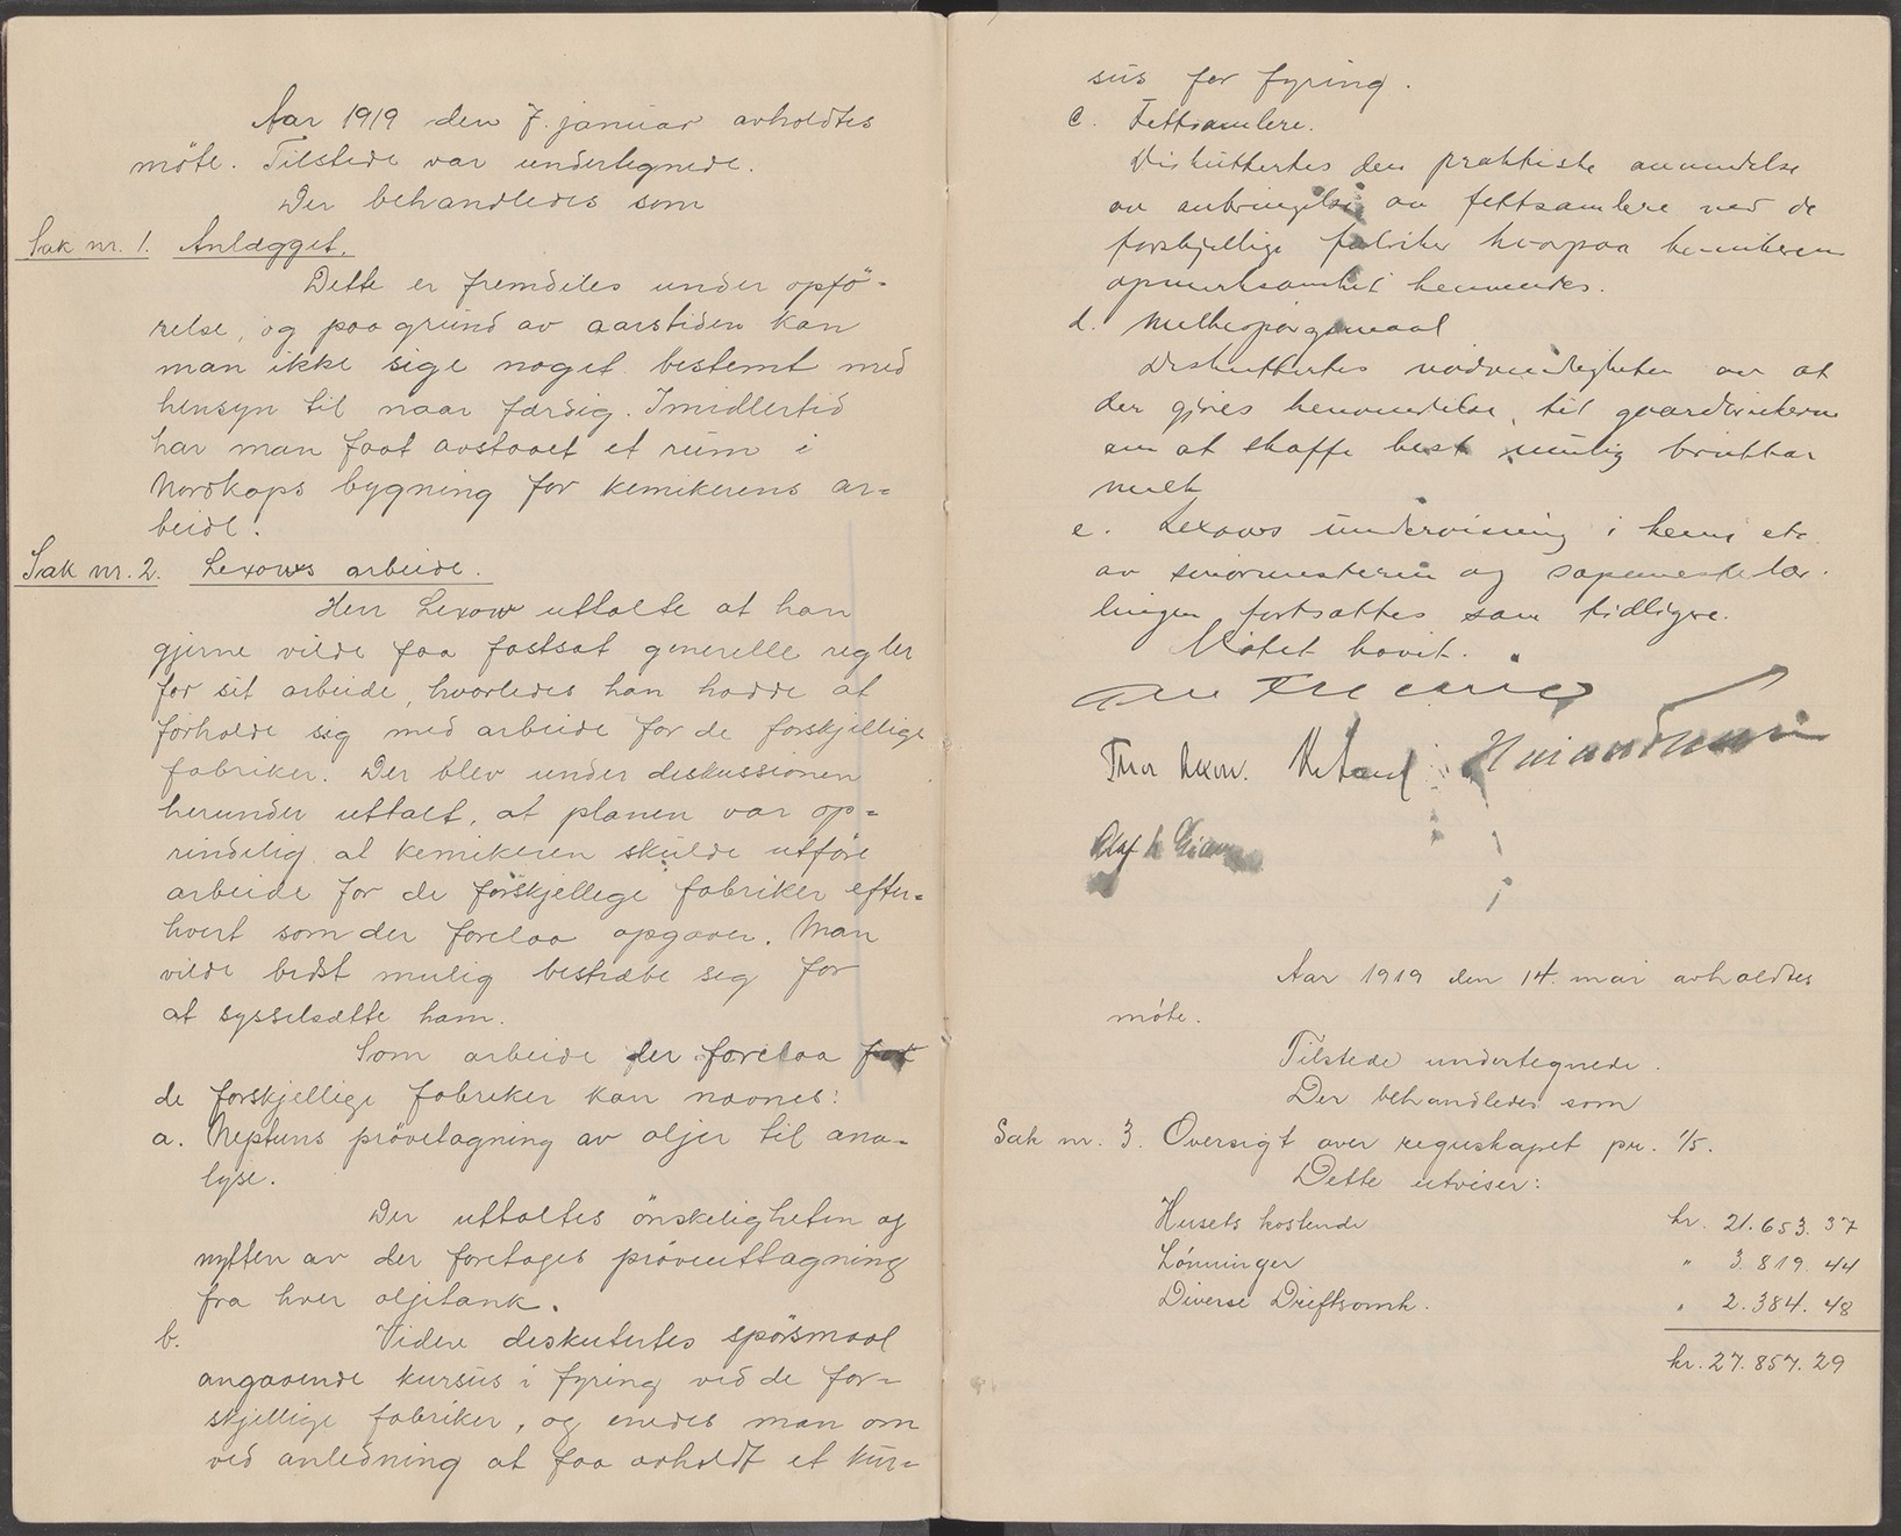 Aar 1919 den 7. januar avholdtes
møte. Tilstede var undertegnede.
Der behandledes som
Sak nr. 1. Anlægget.
Dette er fremdeles under opfö-
relse, og paa grund av aarstiden kan
man ikke sige noget bestemt med
hensyn til naar færdig. Imidlertid
har man faat avstaaet et rum i
Nordkaps bygning for kemikerens ar-
beide.
Sak nr. 2. Lexows arbeide.
Herr Lexow uttalte at han
gjerne vilde faa fastsat generelle regler
for sit arbeide, hvorledes han hadde at
forholde sig med arbeide for de forskjellige
fabriker. Der blev under diskussionen
herunder uttalt, at planen var op-
rindelig at kemikeren skulde utføre
arbeide for de forskjellege fabriker efter-
hvert som der forelaa opgaver. Man
vilde bedst mulig bestræbe seg for
at sysselsætte ham.
Som arbeide der forelaa for
de forskjellige fabreker kan nævnes:
a. Neptuns prövetagning av oljer til ana-
lyse.
Der uttaltes önskeligheten og
nytten av der foretages prøveuttagning
fra hver oljetank.
b. Videre deskutertes spörsmaal
angaaende kursus i fyring ved de for-
skjellige fabriker, og enedes man om
ved anledning at faa avholdt et kur-
sus for fyring.
c. Fettsamlere.
Diskuttertes den praktiske anvendelse
av anbringelse av fettsamlere ved de
forskjellige fabriker hvorpaa kemikeren
opmerksomhet henvendes.
d. Melkespørgsmaal
Diskuttertes nødvendigheten av at
der gjøres henvendelse til gaardbrukerne
om at skaffe best mulig brukbar
melk
e. Lexows undervisning i kemi etc.
av smørmesteren og lær-
lingen fortsattes som tidligere.
Møtet hævet.
Thor Lexow.
Olaf
Aar 1919 den 14. mai avholdtes
møte.
Tilstede undertegnede.
Der behandledes som
Sak nr. 3. Oversigt over regnskapet pr. 1/5.
Dette utviser:
Husets kostende kr. 21.653.37
Lønninger " 3.819.44
Diverse Driftsomk. " 2.384.48
kr. 27.857.29